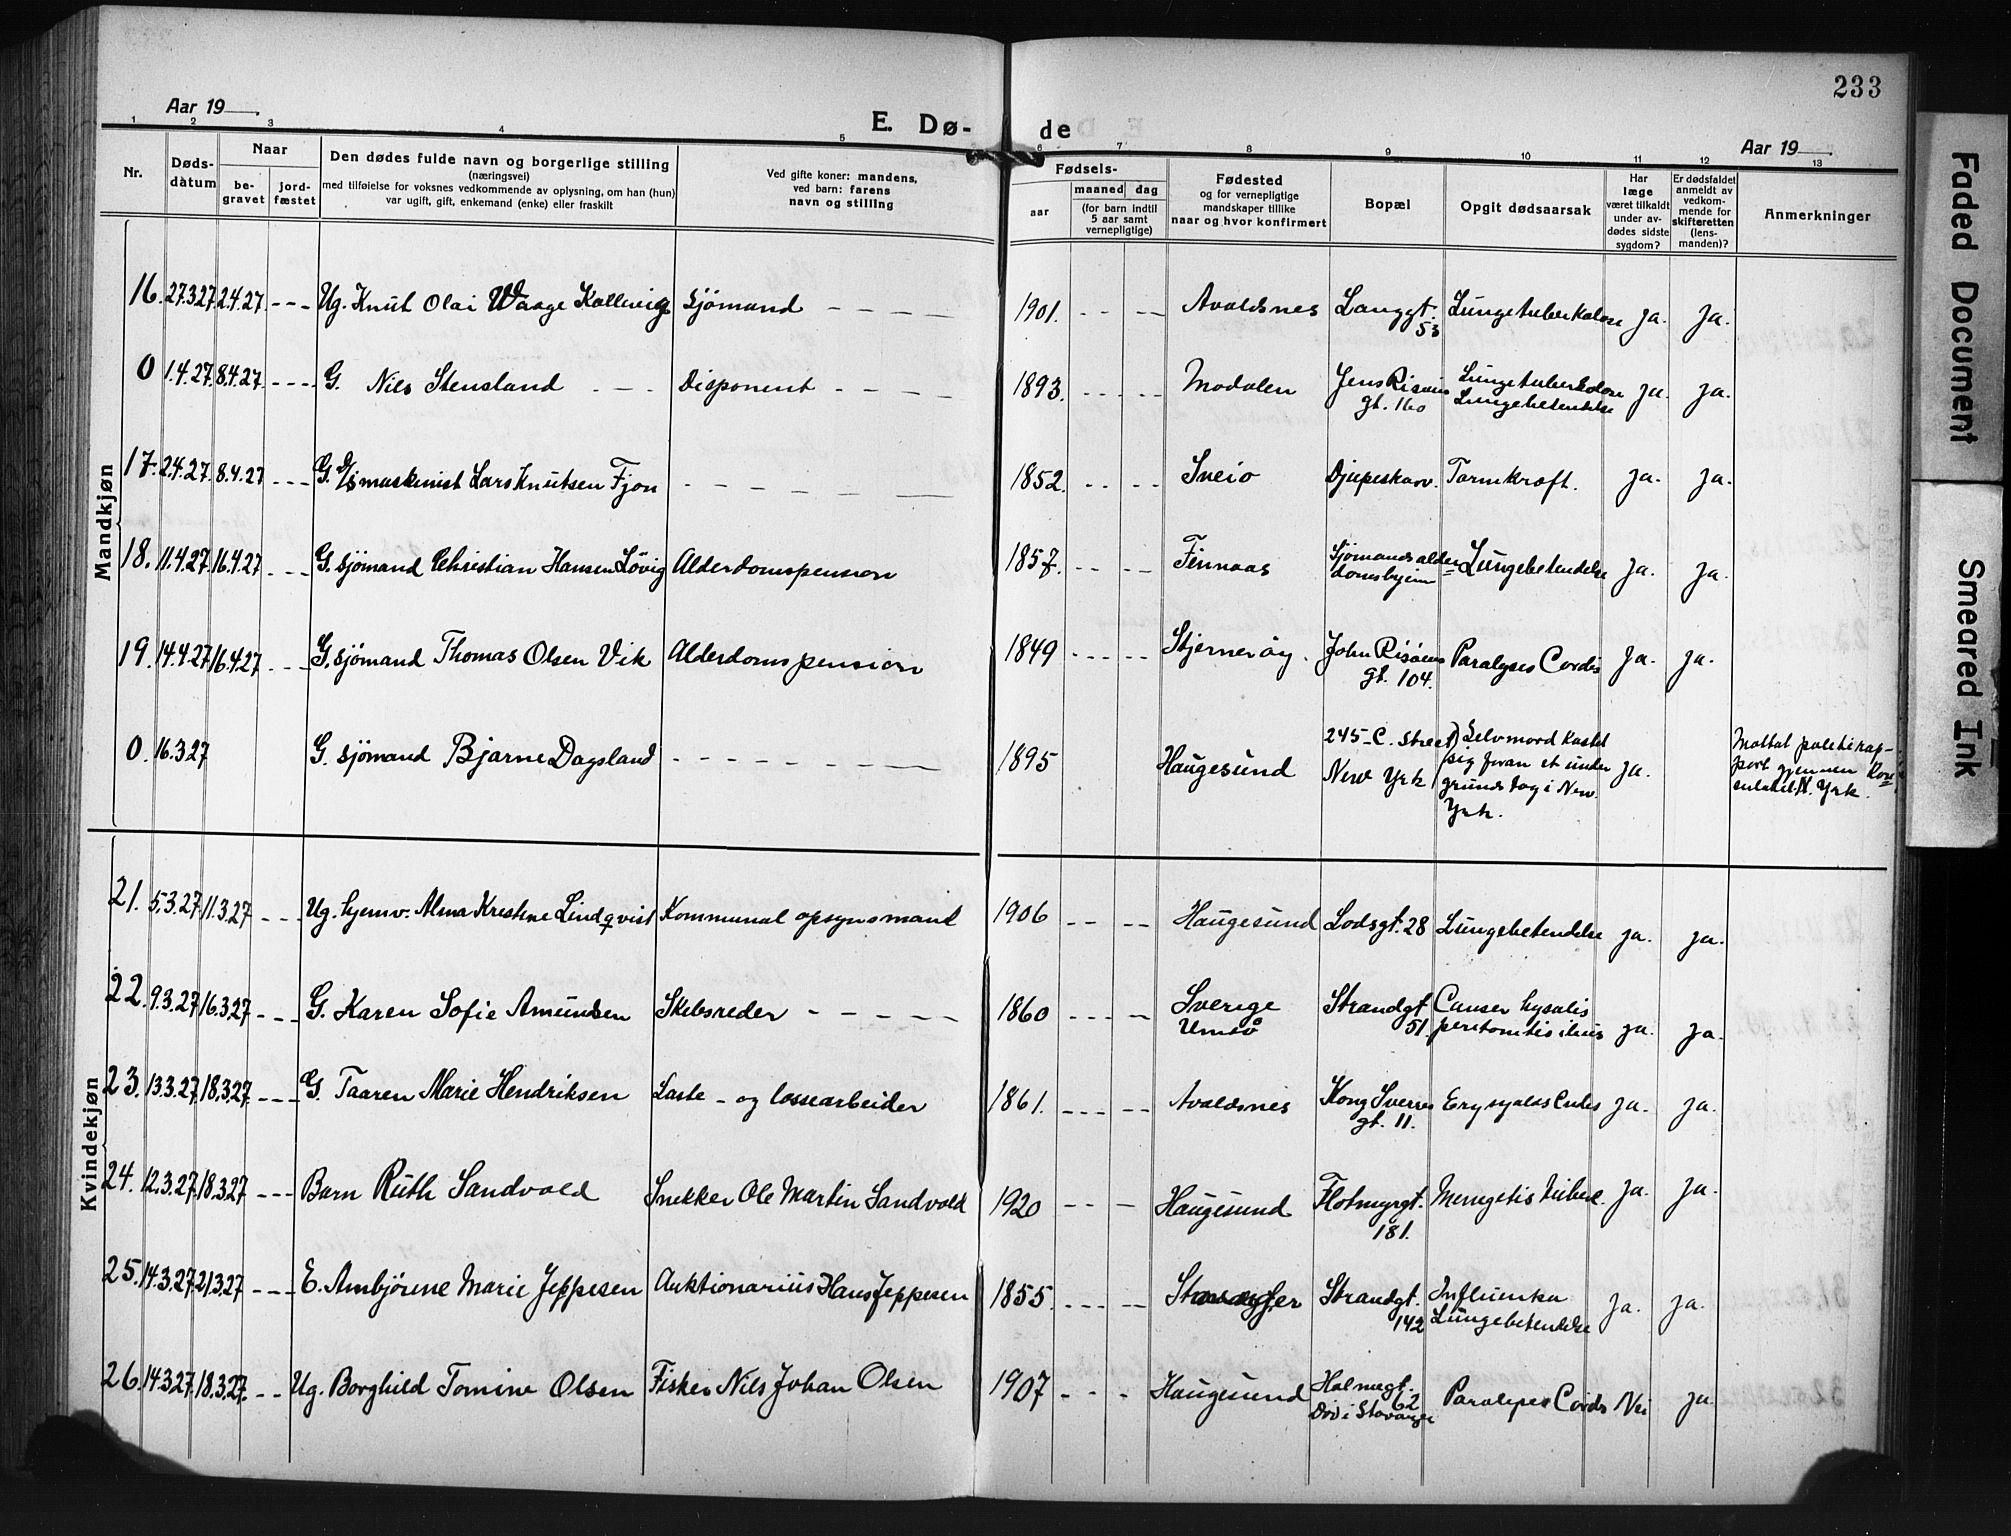 233
Aar 19
E. Dø-
de
Aar 19
1 2 3 4 5 6 7 8 9 10 11 12 13
Nr.
Døds-
datum
Naar
be-
gravet
jord-
fæstet
Den dødes fulde navn og borgerlige stilling
(næringsvei)
med tilføielse for voksnes vedkommende av oplysning, om han (hun)
var ugift, gift, enkemand (enke) eller fraskilt
Ved gifte koner: mandens,
ved barn: farens
navn og stilling
Fødsels-
aar
maaned
dag
(for barn indtil
5 aar samt
vernepligtige)
Fødested
og for vernepligtige
mandskaper tillike
naar og hvor konfirmert
Bopæl
Opgit dødsaarsak
Har
læge
været tilkaldt
under av-
dødes sidste
sygdom?
Er dødsfaldet
anmeldt av
vedkom-
mende for
skifteretten
(lens-
manden)?
Anmerkninger
Mandkjøn
16. 27.3.27 2.4.27 - - - Ug. Knut Olai Waage Kallevig Sjömand - - - - 1901. - - - - Avaldsnes Langgt. 53 Lungetuberkulose Ja. Ja.
0 1.4.27. 8.4.27 - - - - G. Nils Stensland - - - Disponent - - - - 1893. - - - - - Modalen Jens Risøens gt. 160 Lungetuberkulose Lungebetendelse Ja. Ja.
17. 2.4.27. 8.4.27 - - - G. maskinist Lars Knutsen Fjon - - - - - - 1852. - - - - Sveio Djupeskar. Tarmkræft. Ja. Ja.
18. 11.4.27 16.4.27 - - - G. sjömand Christian Hansen Lövig Alderdomspension 1857. - - - - Finnaas Sjømandsalder= domshjem Lungebetendelse Ja. Ja.
19. 14.4.27 16.4.27 - - - G. sjömand Thomas Olsen Vik Alderdomspension 1849 - - - - - Stjernerøy. John Risøens gt. 104. Paralyses Cordis Ja. Ja.
0. 16.3.27 G. sjömand Bjarne Dagsland - - - - - - - - 1895 Haugesund 245-C. Street New York Selvmord kastet sig foran et under grunds tog i New York. Ja. Mottat politirap- port gjennem Kon= sulatet N. York.
Kvindekjøn
21. 5.3.27. 11.3.27 - - - Ug. hjemv. Alma Kristine Lindqvist Kommunal opsynsmand 1906 - - - - Haugesund Lodsgt. 28 Lungebetendelse Ja. Ja.
22. 9.3.27 16.3.27 - - - G. Karen Sofie Amundsen Skibsreder - - - - - 1860 - - - - - Sverige Strandgt. 51. Cancer peritonitis ileus Ja. Ja.
23. 13.3.27 18.3.27 - - - G. Taaren Marie Hendriksen Laste - og lossearbeider 1861. - - - - - Avaldsnes Kong Sverres gt. 11. Ja. Ja.
24. 12.3.27. 18.3.27 - - - Barn Ruth Sandvold Snekker Ole Martin Sandvold 1920 - - - Haugesund Flotmyrgt. 181. Ja. Ja.
25. 14.3.27. 21.3.27 - - - E. Ambjörene Marie Jeppesen Auktionarius Hans Jeppesen 1855. - - - - - Stavanger Strandgt. 142 Influensa Lungebetendelse Ja. Ja.
26. 14.3.27 18.3.27. - - Ug. Borghild Tomine Olsen Fisker Nils Johan Olsen 1907 - - - Haugesund 62 Død i Stavanger Paralyses Cordis Nei Ja.
Faded Document
Smeared Ink